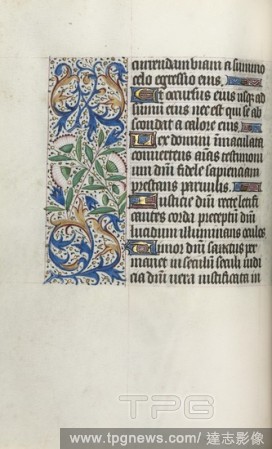 currendam viam a summo
celo egressio eius.
Et occursus eius usq; ad
summū eius nec est qui se ab
scondit a calore eius
Lex domini immaculata
convertens aīas testimoni
um dm̄ fidele sapienciam
prestans parvulis.
Iusticie dm̄ recte letifi
cantes corda preceptū dm̄
lucidum illuminans oculos
Timor dm̄ sanctus per
manet in seculū seculi iudi
cia dm̄ vera iustificata in
TPG
www.tpgnews.com/達志影像